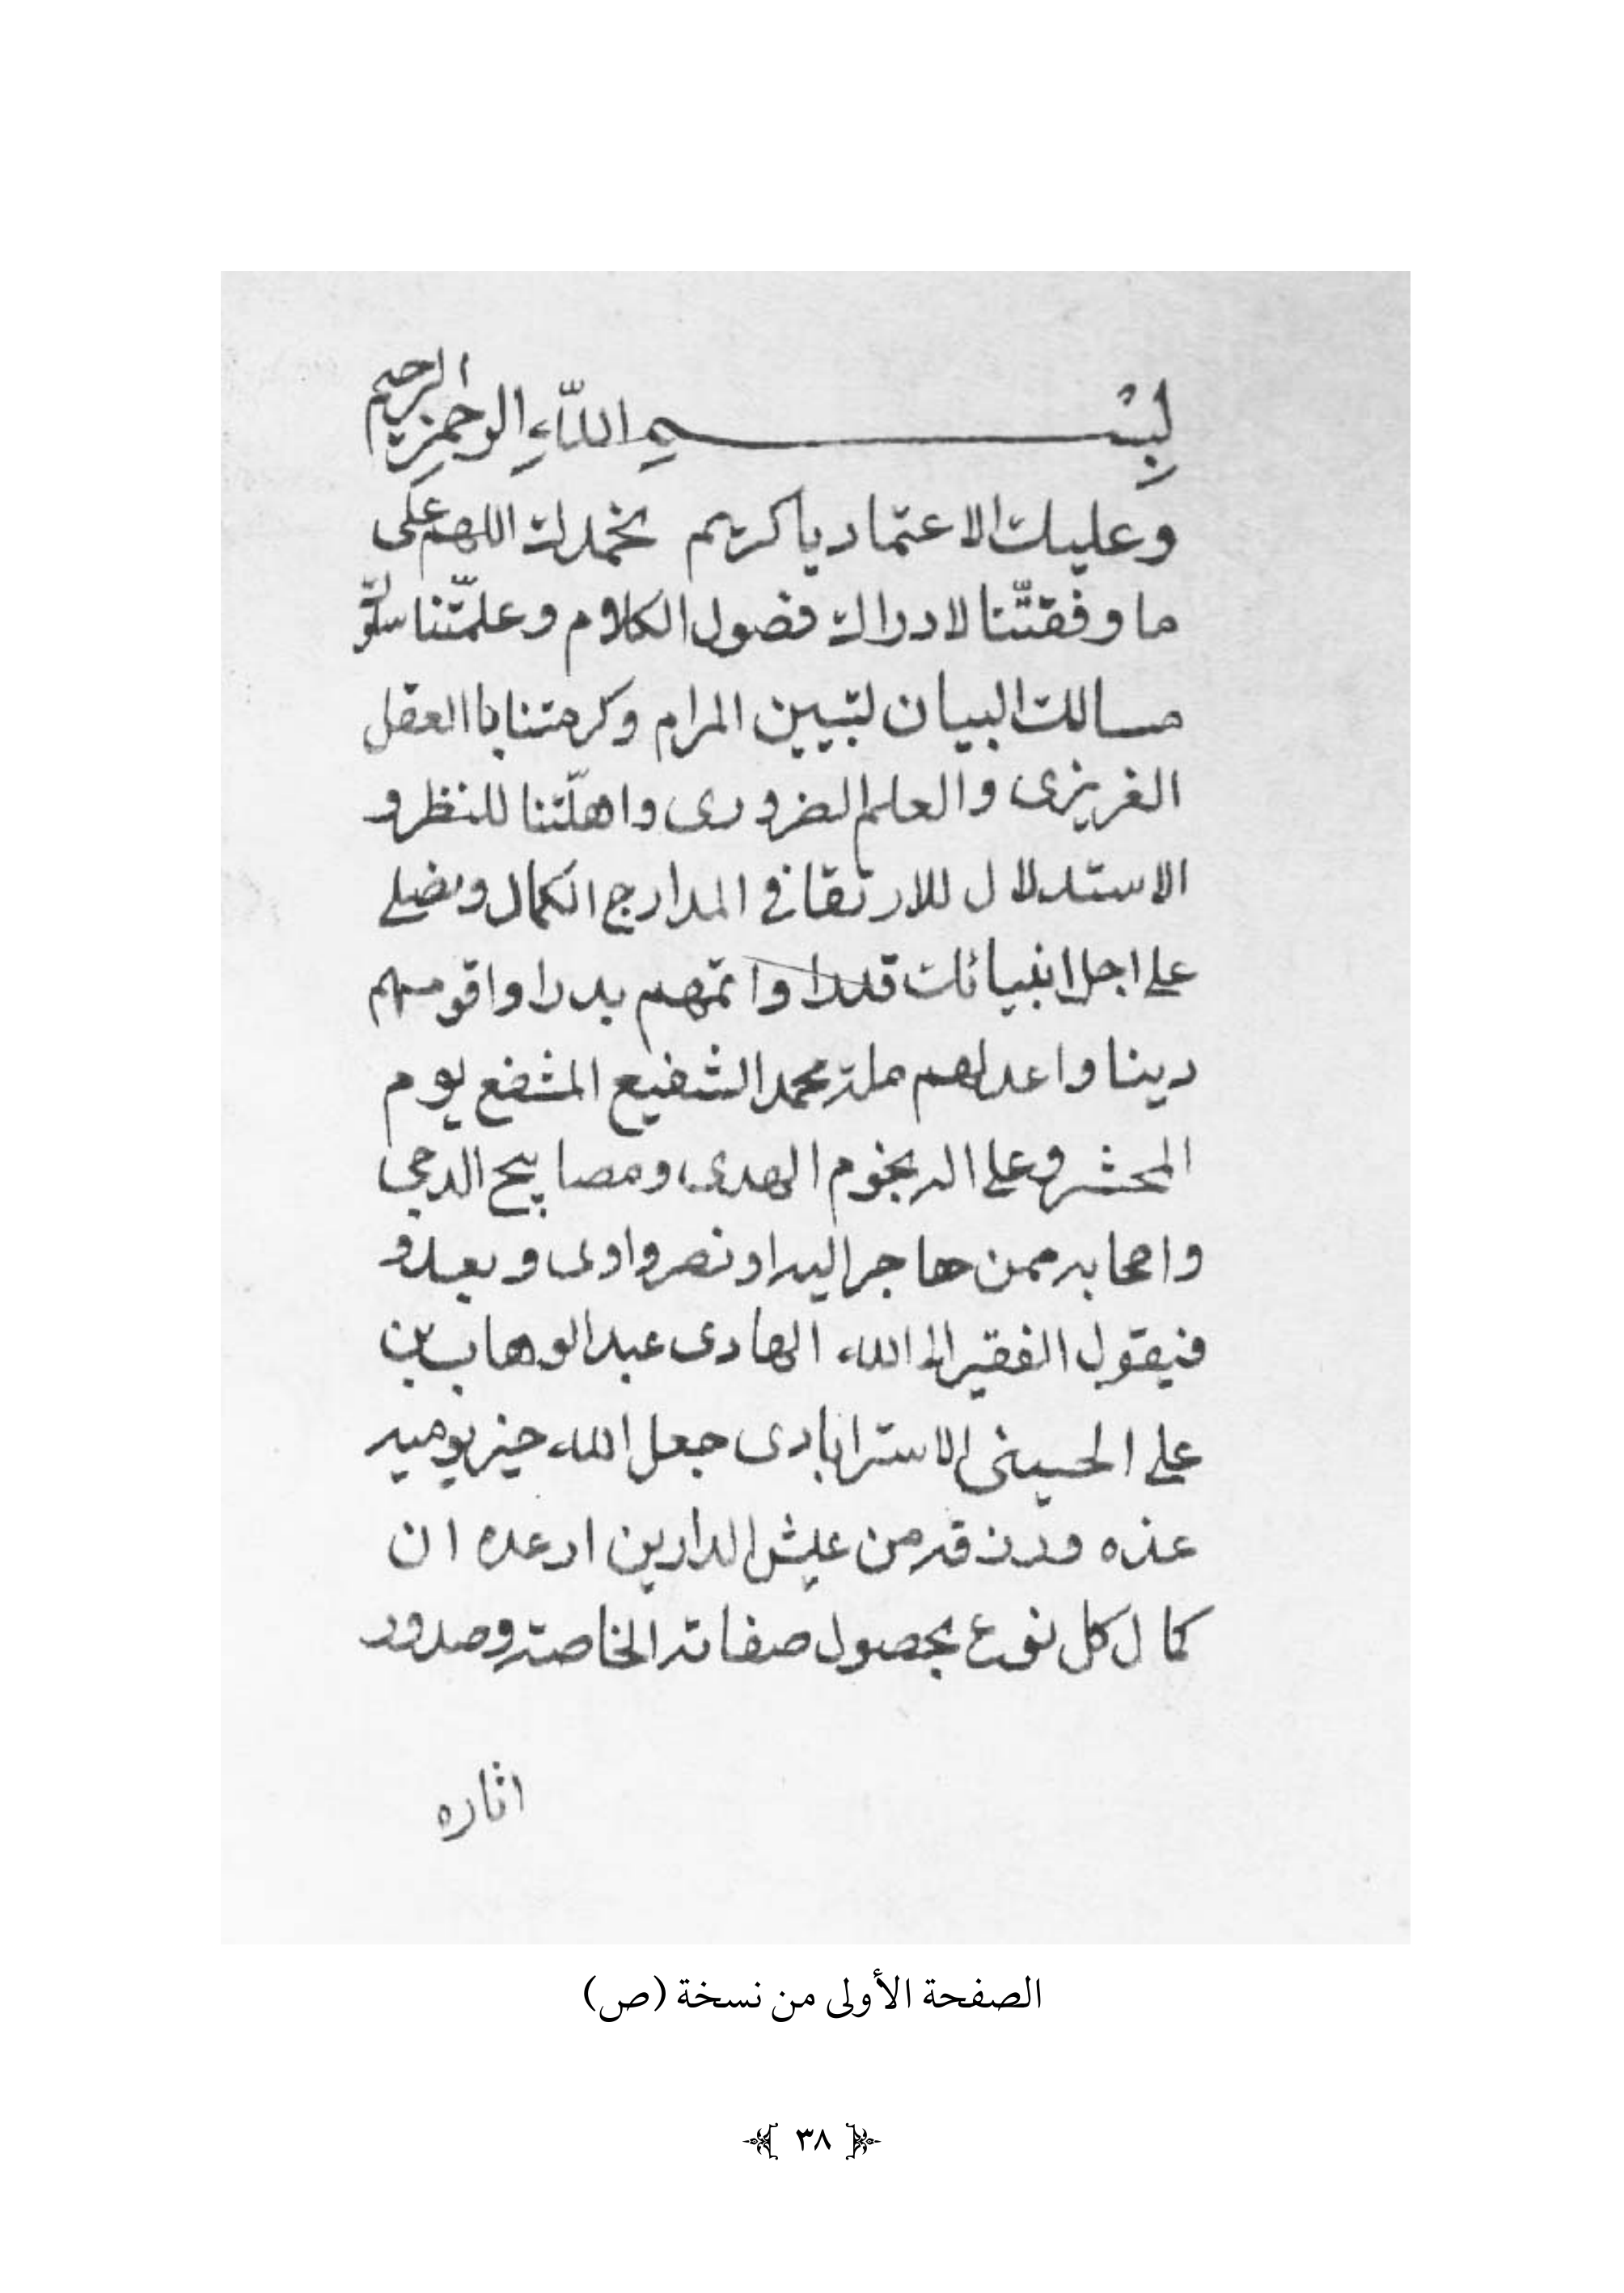 بِسْمِ اللّٰهِ الرحمن الرحيم
وعليك الاعتماد يا كريم نحمدك اللهم على
ما وفقتّنا لادراك فصول الكلام وعلمّتنا سلوك
مسالك البيان لتبيين المرام وكرمتنا باالعقل
الغريزى والعلم الضرورى واهلّتنا للنظر و
الاستدلال للارتقا فى المدارج الكمال ونصلى
على اجل انبيائك قدرا واتمهم بدرا واقومهم
دينا واعدلهم ملة محمد الشفيع المشفع يوم
المحشر وعلى اله نجوم الهدى ومصابيح الدجى
واصحابه ممن هاجر اليه او نصر واوى وبعد و
فيقول الفقير الى الله الهادى عبد الوهاب بن
على الحسينى الاسترابادى جعل الله خير يوميه
غده ورزقه من عيش الدارين ارغده ان
كمال كل نوع بحصول صفاته الخاصة وصدور
اثاره
الصفحة الأولى من نسخة (ص)
٣٨